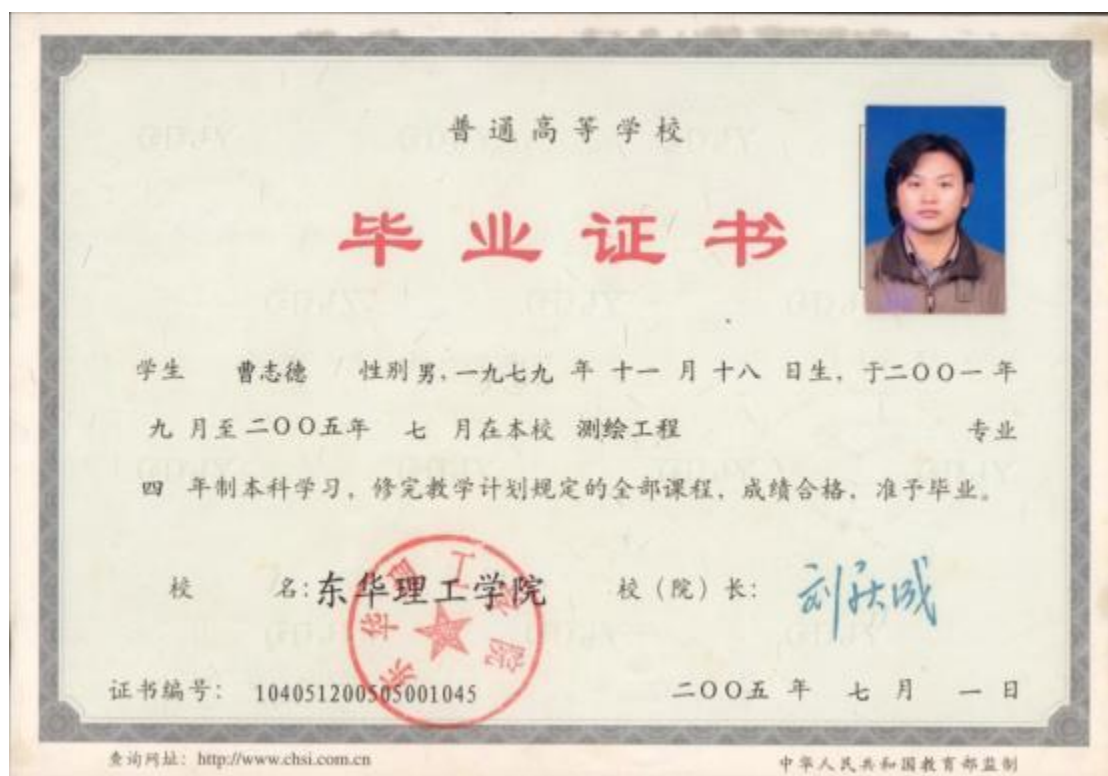 普通高等学校
毕业证书
学生 曹志德 性别 男, 一九七九 年 十一 月 十八 日生, 于二〇〇一 年
九 月至 二〇〇五年 七 月在本校 测绘工程 专业
四 年制本科学习, 修完教学计划规定的全部课程, 成绩合格, 准予毕业。
校 名: 东华理工学院 校(院)长:
东华理工学院
证书编号: 104051200505001045 二〇〇五 年 七 月 一 日
查询网址: http://www.chsi.com.cn 中华人民共和国教育部监制